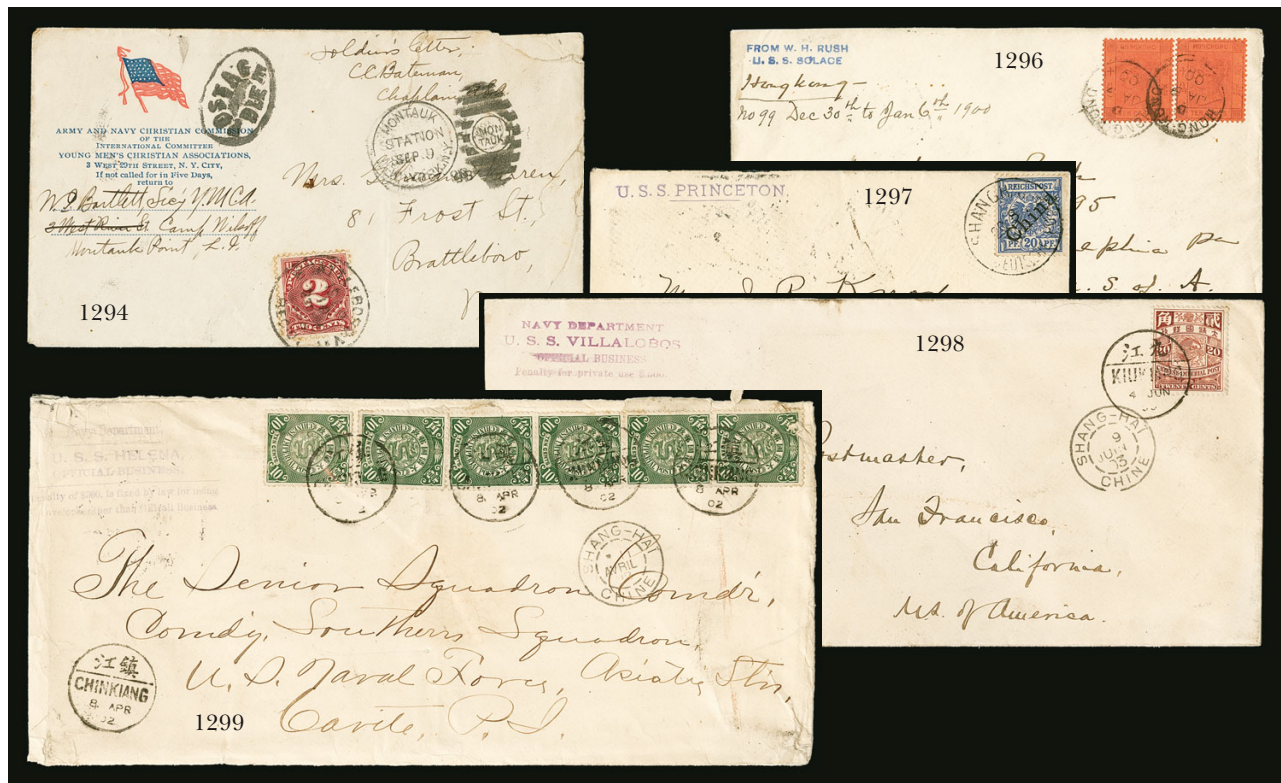 ARMY AND NAVY CHRISTIAN COMMISSION
OF THE
INTERNATIONAL COMMITTEE
YOUNG MEN'S CHRISTIAN ASSOCIATIONS,
3 WEST 29TH STREET, N. Y. CITY,
If not called for in Five Days,
return to
Bartlett Sec'y YMCA
3 West River St. Camp Wikoff
Montauk Point, L.I.
POSTAGE
DUE
Soldier's letter,
C.C. Bateman,
Chaplain
MONTAUK
STATION
SEP 9
MON
TAUK
Mrs.
81 Frost St,
Brattleboro,
POSTAGE DUE
2
TWO CENTS
1294
FROM W. H. RUSH
U. S. S. SOLACE
Hongkong
No 99 Dec 30th to Jan 6th 1900
1296
HONG KONG
95
Pa
S. of A.
U.S.S. PRINCETON,
1297
REICHSPOST
China
20
SHANG
NAVY DEPARTMENT
U. S. S. VILLALOBOS
OFFICIAL BUSINESS
Penalty for private use $300.
1298
角 貳
20
江 九
KIUKIANG
4 JUN
SHANG-HAI
9
JUIN
05
CHINE
Postmaster,
San Francisco,
California,
U.S. of America.
Navy Department,
U. S. S. HELENA,
OFFICIAL BUSINESS,
Penalty of $300, is fixed by law for using
envelopes other than Official Business
10
8 APR
02
SHANG-HAI
AVRIL
CHINE
The Senior Squadron Comdr,
Comdg. Southern Squadron,
U. S. Naval Force, Asiatic Stn,
Cavite, P. I.
江 鎮
CHINKIANG
8 APR
02
1299